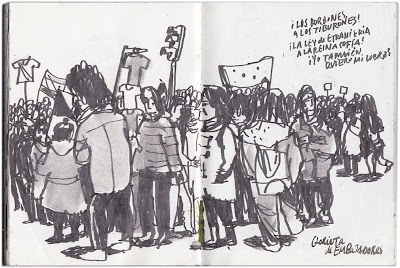 ¡LOS BORBONES,
A LOS TIBURONES!
¡LA LEY DE EXTRANJERIA
A LA REINA SOFIA!
¡YO TAMBIÉN
QUIERO MI
Glorieta
de EMBAJADORES